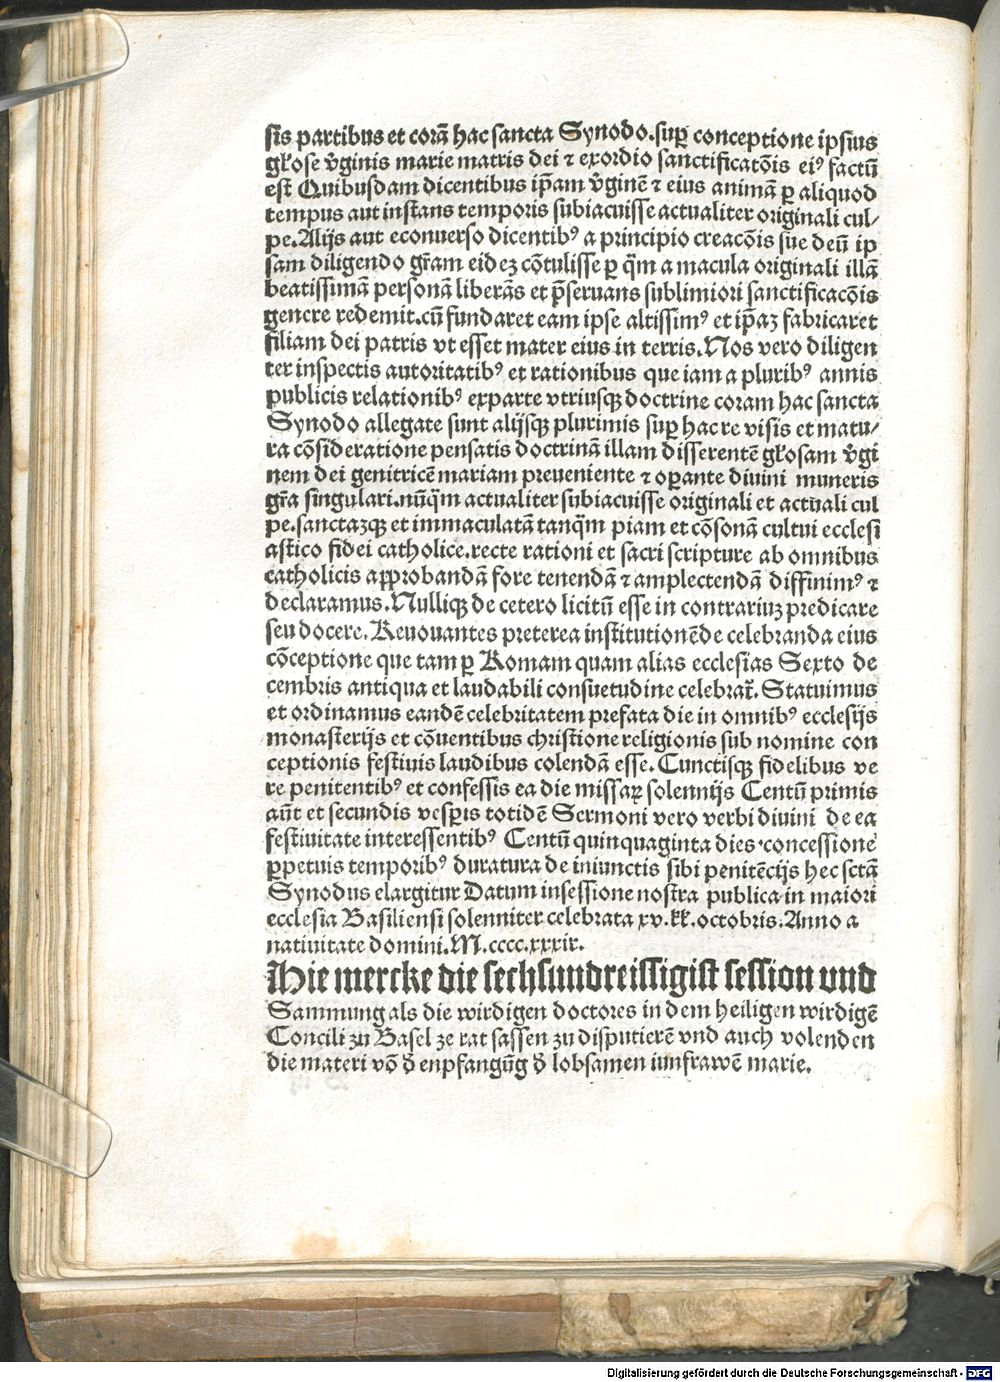 sis partibus et corā hac sancta Synodo.suꝑ conceptione ipsius
gl̄ose v̄ginis marie matris dei ⁊ exordio sanctificatōis eiꝰ factū
est Quibusdam dicentibus ip̄am v̄ginē ⁊ eius animā ꝑ aliquod
tempus aut instans temporis subiacuisse actualiter originali cul⸗
pe.Alijs aut econuerso dicentibꝰ a principio creacōis sue deū ip
sam diligendo gr̄am eidez cōtulisse ꝑ q̄m a macula originali illā
beatissimā personā liberās et p̄seruans sublimiori sanctificacōis
genere redemit.cū fundaret eam ipse altissimꝰ et ip̄az fabricaret
filiam dei patris vt esset mater eius in terris.Nos vero diligen
ter inspectis autoritatibꝰ et rationibus que iam a pluribꝰ annis
publicis relationibꝰ exparte vtriusqꝫ doctrine coram hac sancta
Synodo allegate sunt alijsqꝫ plurimis suꝑ hac re visis et matu⸗
ra cōsideratione pensatis doctrinā illam disserentē gl̄osam v̄gi
nem dei genitricē mariam preueniente ⁊ oꝑante diuini muneris
gr̄a singulari.nūq̄m actualiter subiacuisse originali et actuali cul
pe.sanctazqꝫ et immaculatā tanq̄m piam et cōsonā cultui ecclesi
astico fidei catholice.recte rationi et sacri scripture ab omnibus
catholicis aꝓrobandā fore tenendā ⁊ amplectendā diffinimꝰ ⁊
declaramus.Nulliqꝫ de cetero licitū esse in contrariuz predicare
seu docere.Reuouantes preterea institutionēde celebranda eius
cōceptione que tam ꝑ Romam quam alias ecclesias Sexto de
cembris antiqua et laudabili consuetudine celebrat̄.Statuimus
et ordinamus eandē celebritatem prefata die in omnibꝰ ecclesijs
monasterijs et cōuentibus christione religionis sub nomine con
ceptionis festiuis laudibus colendā esse.Cunctisqꝫ fidelibus ve
re penitentibꝰ et confessis ea die missaꝝ solennijs Centū primis
aūt et secundis vesꝑis totidē Sermoni vero verbi diuini de ea
festiuitate interessentibꝰ Centū quinquaginta dies concessione
ꝑpetuis temporibꝰ duratura de iniunctis sibi penitēcijs hec sctā
Synodus elargitur Datum insessione nostra publica in maiori
ecclesia Basiliensi solenniter celebrata xv.kl̄.octobris.Anno a
natiuitate domini.M.cccc.xxxix.
Hie mercke die sechsundreissigist session und
Sammung als die wirdigen doctores in dem heiligen wirdigē
Concili zu Basel ze rat sassen zu disputierē vnd auch volenden
die materi vō d̄ enpfangūg d̄ lobsamen iunfrawē marie.
Digitalisierung gefördert durch die Deutsche Forschungsgemeinschaft - DFG